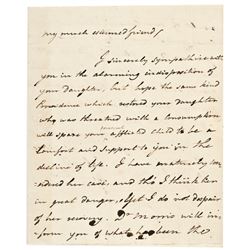 my much esteemed friend/
I sincerely sympathise with
you in the alarming indisposition of
your daughter, but hope the same kind
Providence which restored your daughter
who was threatned with a Consumption
will spare your afflicted child to be a
comfort and support to you in the
decline of life. I have maturely con
sidered her case, and tho I think her
in great danger, yet I do not despair
of her recovery. Dr Morris will in
form you of what has been the